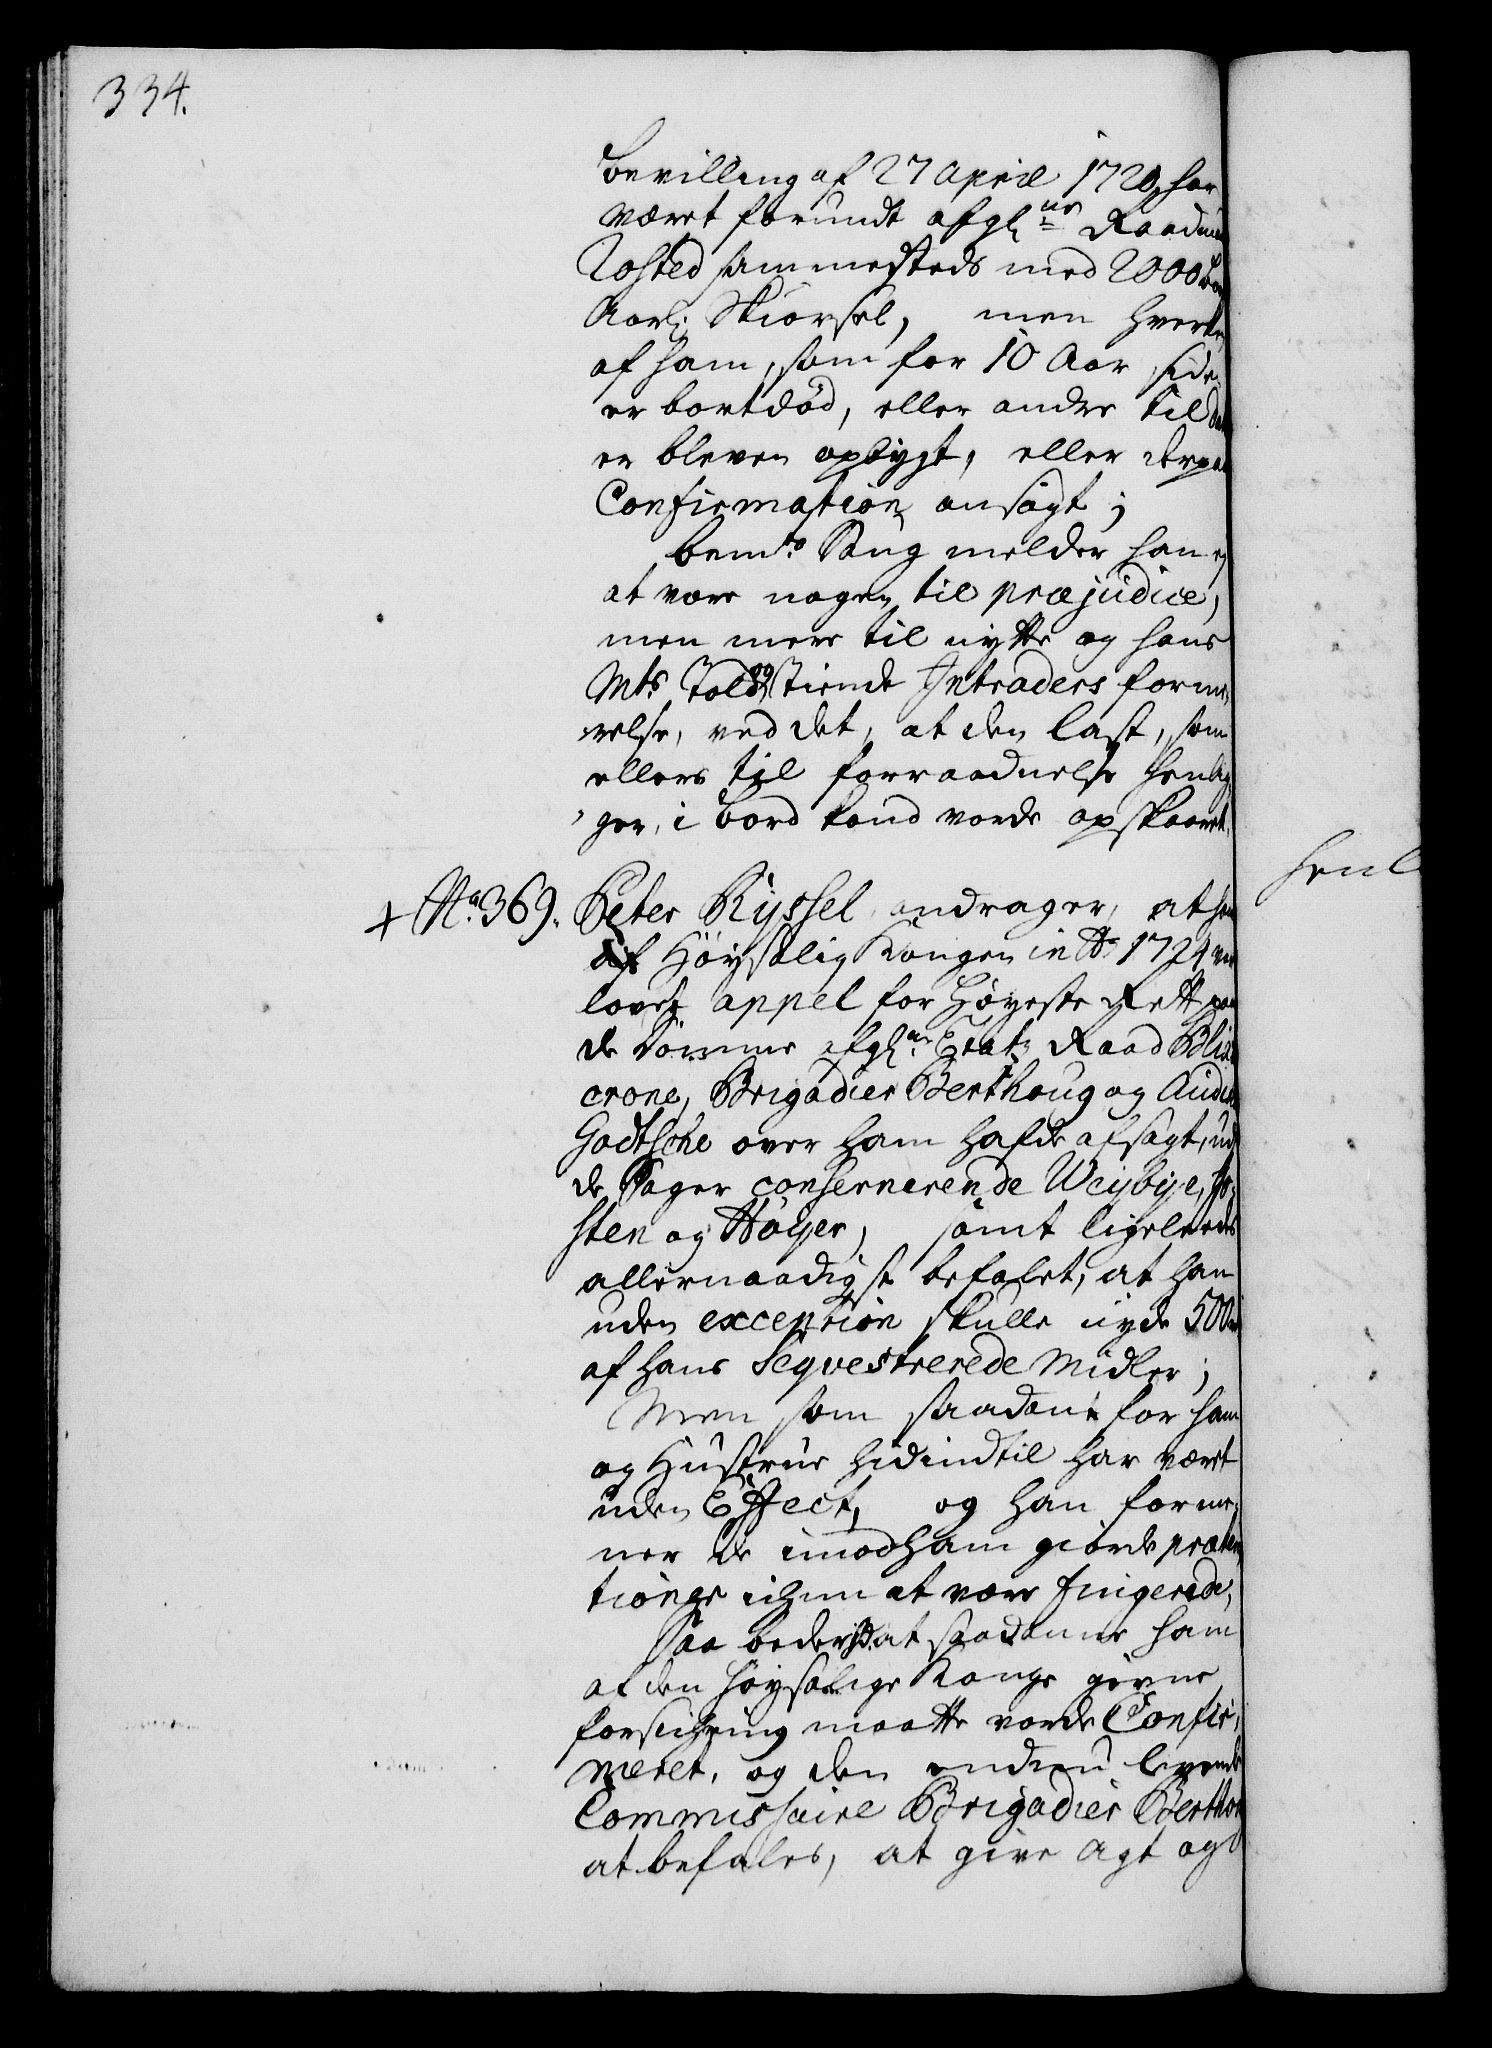 334.
bevilling af 27 April 1720, har
været forundt afgl: Raadm
Rosted sammesteds med 2000
Aarl: Skiørsel, men hverken
af ham, som for 10 Aar siden
er bortdød, eller andre til
er bleven opbygt, eller derpaa
Confirmation ansøgt;
bemte Saug melder han ej
at være nogen til præjudice,
men mere til nytte og hans
Mts Told og Tiende Intraders forme,
relse, ved det, at den last, som
ellers til forraadnelse henlig
ger, i bord kand vorde opskaaret.
henl
+ No 369. Peter Ryssel andrager, at han
af Høysalig Kongen in Ao 1724
lovet appel for Høyeste Rett paa
de Domme afgl: Etatz Raad Blix
crone, Brigadier Berthoug og
Godtsche over ham hafde afsagt, ud
de Sager consernerende Weybye,
sten og Høyer, samt ligeleedes
allernaadigst befalet, at han
uden exception skulle nyde 500
af hans Seqvestrerede Midler;
Men som saadant for ham
og Hustrue hidindtil har været
uden Effect, og han forme,
ner de imod ham giorde præten
tioner ichun at være fingerede,
Saa beder hd. at saadanne ham
af den høysalige Konge givne
forsichring maatte vorde Confir,
meret, og den endnu levende
Commissaire Brigadier Berthou
at befales, at give Agt og